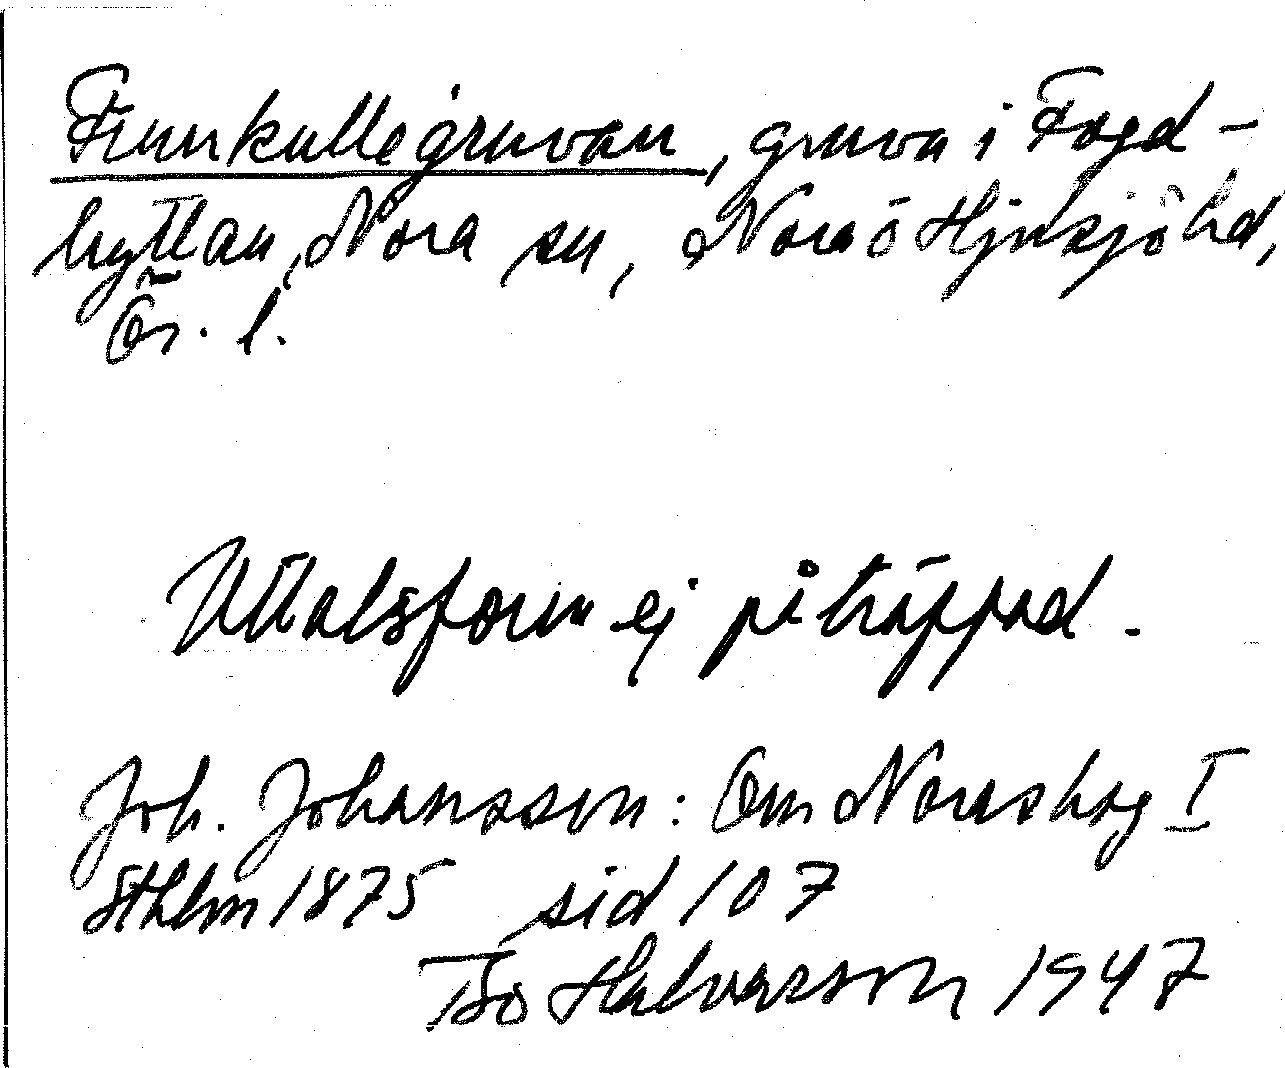 Finnkullegruvan, gruva i Fogd-
hyttan, Nora sn, Nora ö Hjulsjö hd,
Ör. l.
Uttalsform ej påträffad.
Joh. Johansson: Om Noraskog I
Sthlm 1875 sid 107
Bo Halvarsson 1947